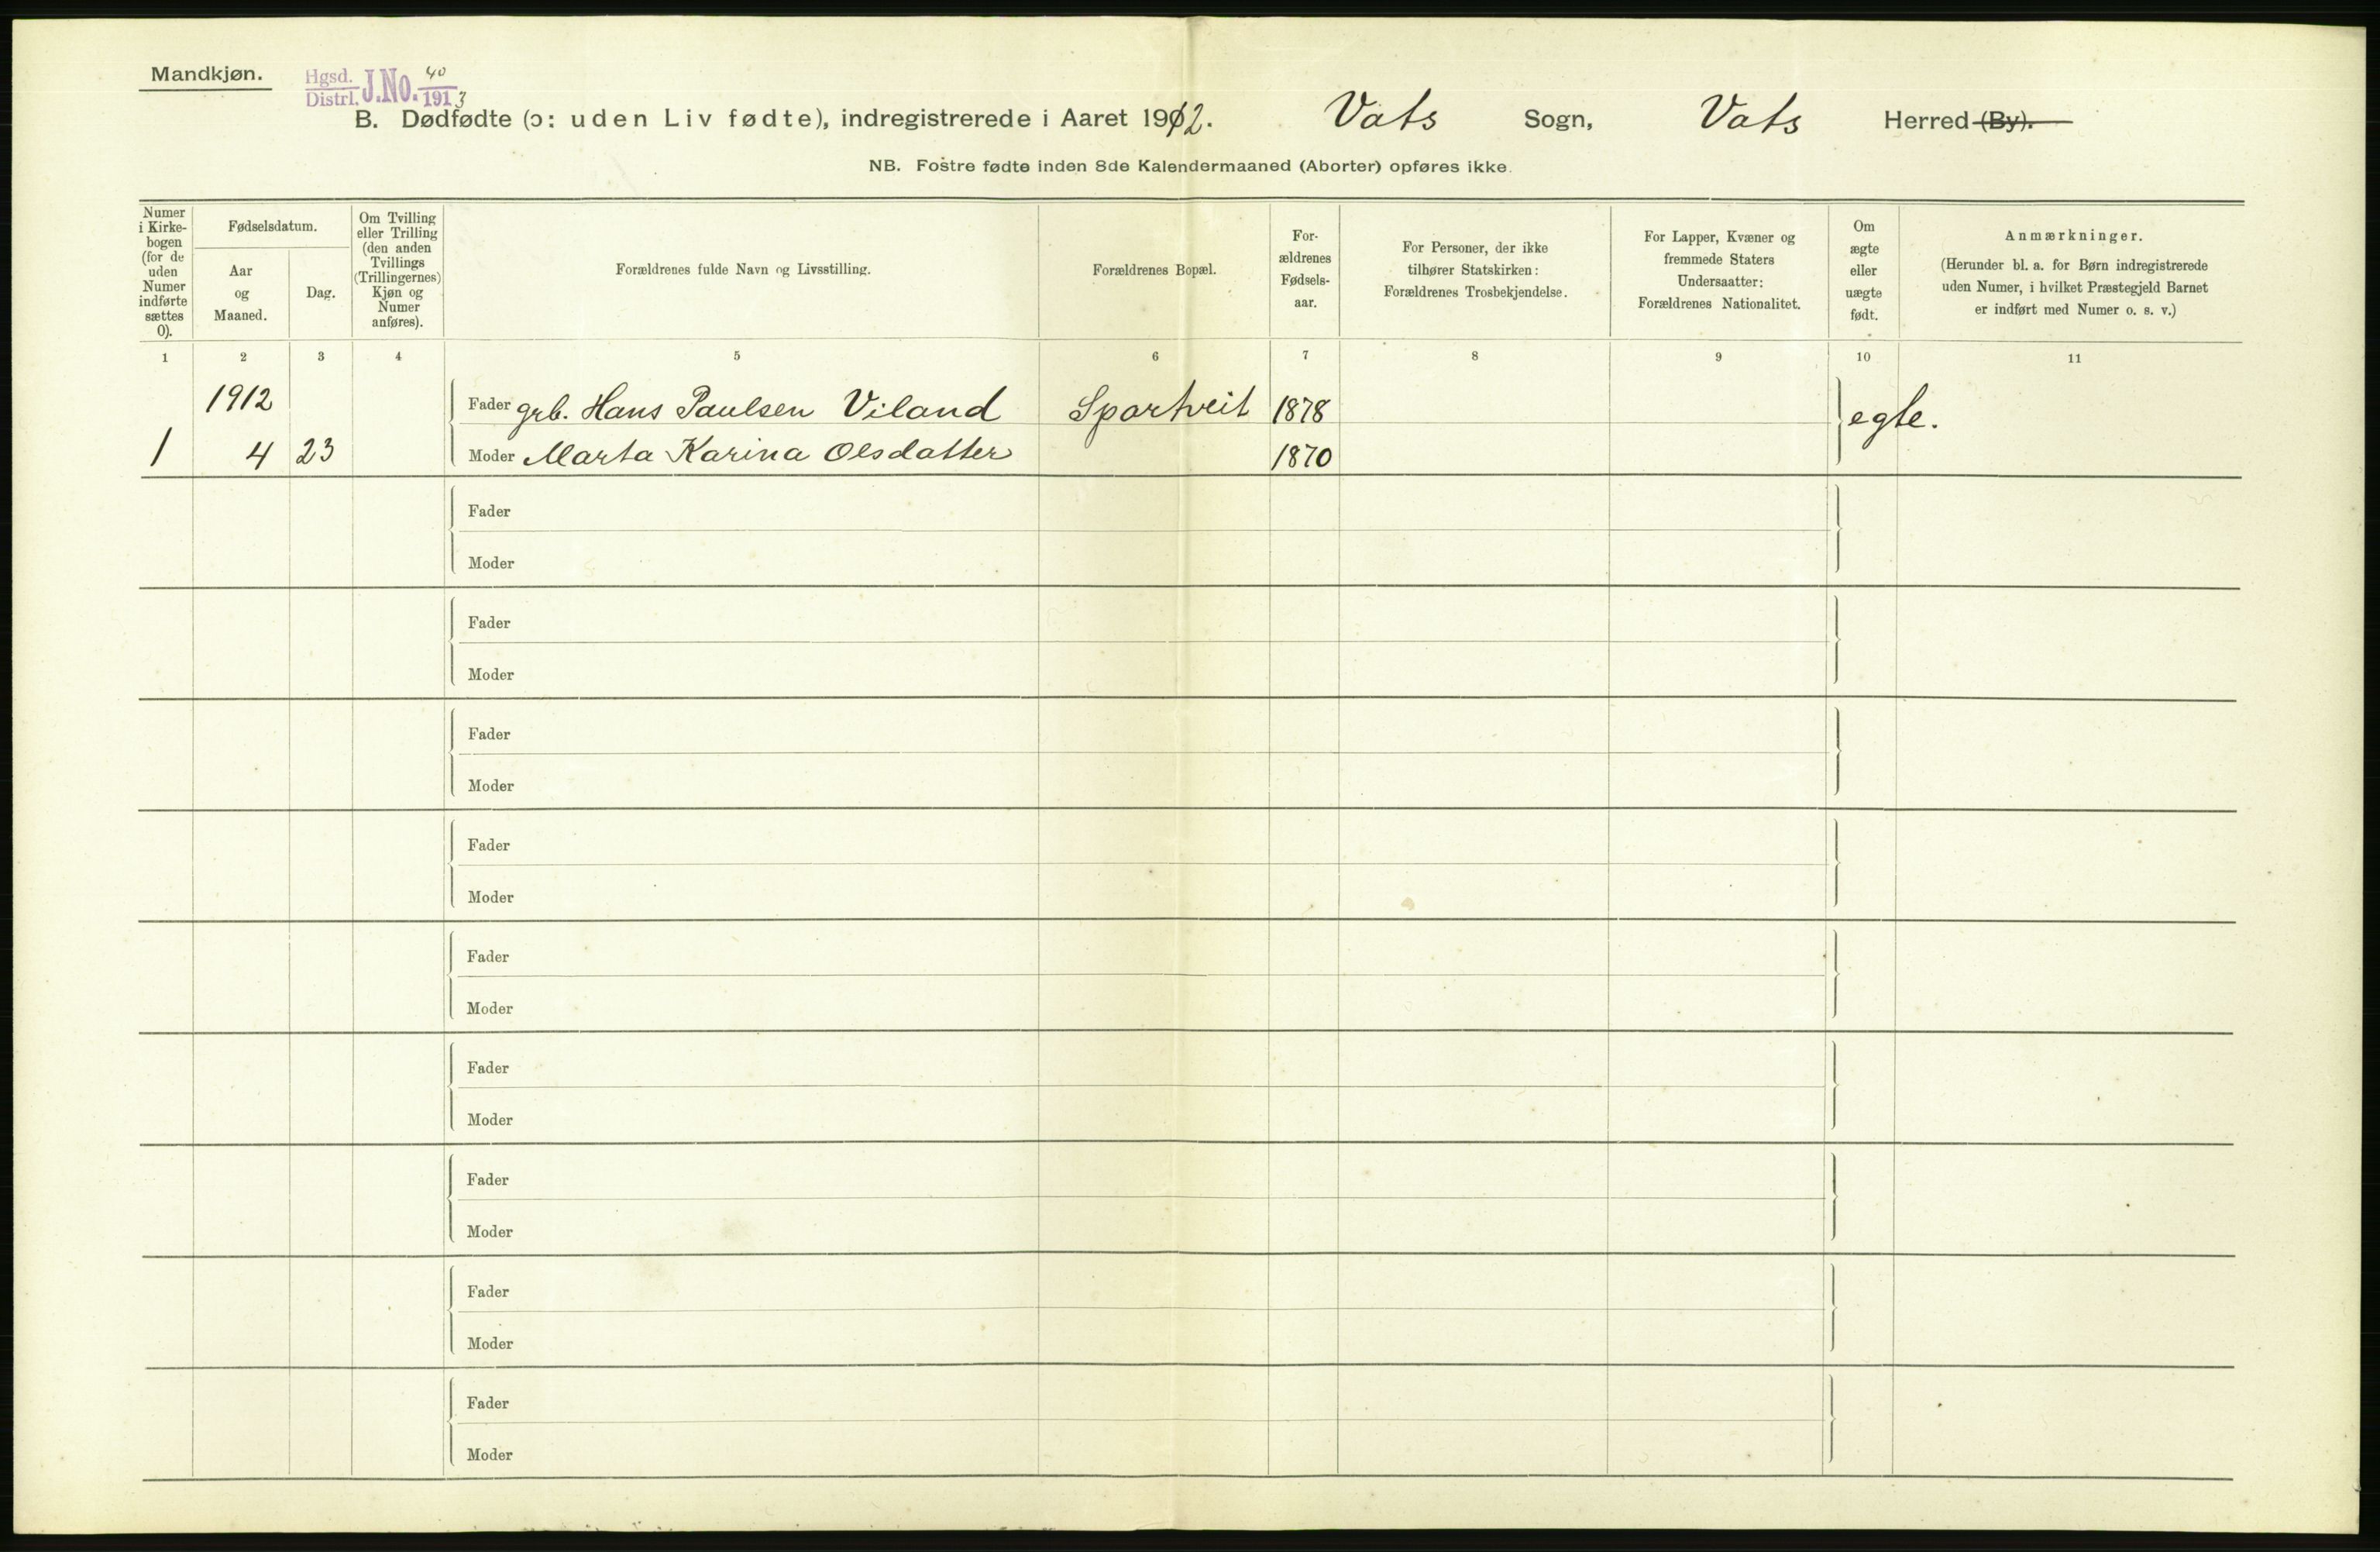 Mandkjøn.
Hgsd. Distrl. J.No. 40/1913
B. Dødfødte (ɔ: uden Liv fødte), indregistrerede i Aaret 1912. Vats Sogn, Vats Herred (By).
NB. Fostre fødte inden 8de Kalendermaaned (Aborter) opføres ikke.
Numer
i Kirke-
bogen
(for de
uden
Numer
indførte
sættes
0).
Fødselsdatum.
Aar
og
Maaned.
Dag.
Om Tvilling
eller Trilling
(den anden
Tvillings
(Trillingernes)
Kjøn og
Numer
anføres).
Forældrenes fulde Navn og Livsstilling.
Forældrenes Bopæl.
For-
ældrenes
Fødsels-
aar.
For Personer, der ikke
tilhører Statskirken:
Forældrenes Trosbekjendelse.
For Lapper, Kvæner og
fremmede Staters
Undersaatter:
Forældrenes Nationalitet.
Om
ægte
eller
uægte
født.
Anmærkninger.
(Herunder bl. a. for Børn indregistrerede
uden Numer, i hvilket Præstegjeld Barnet
er indført med Numer o. s. v.)
1 2 3 4 5 6 7 8 9 10 11
1912 Fader grb. Hans Paulsen Viland Sportveit 1878 egte.
1 4 23 Moder Marta Karina Olsdatter 1870
Fader
Moder
Fader
Moder
Fader
Moder
Fader
Moder
Fader
Moder
Fader
Moder
Fader
Moder
Fader
Moder
Fader
Moder